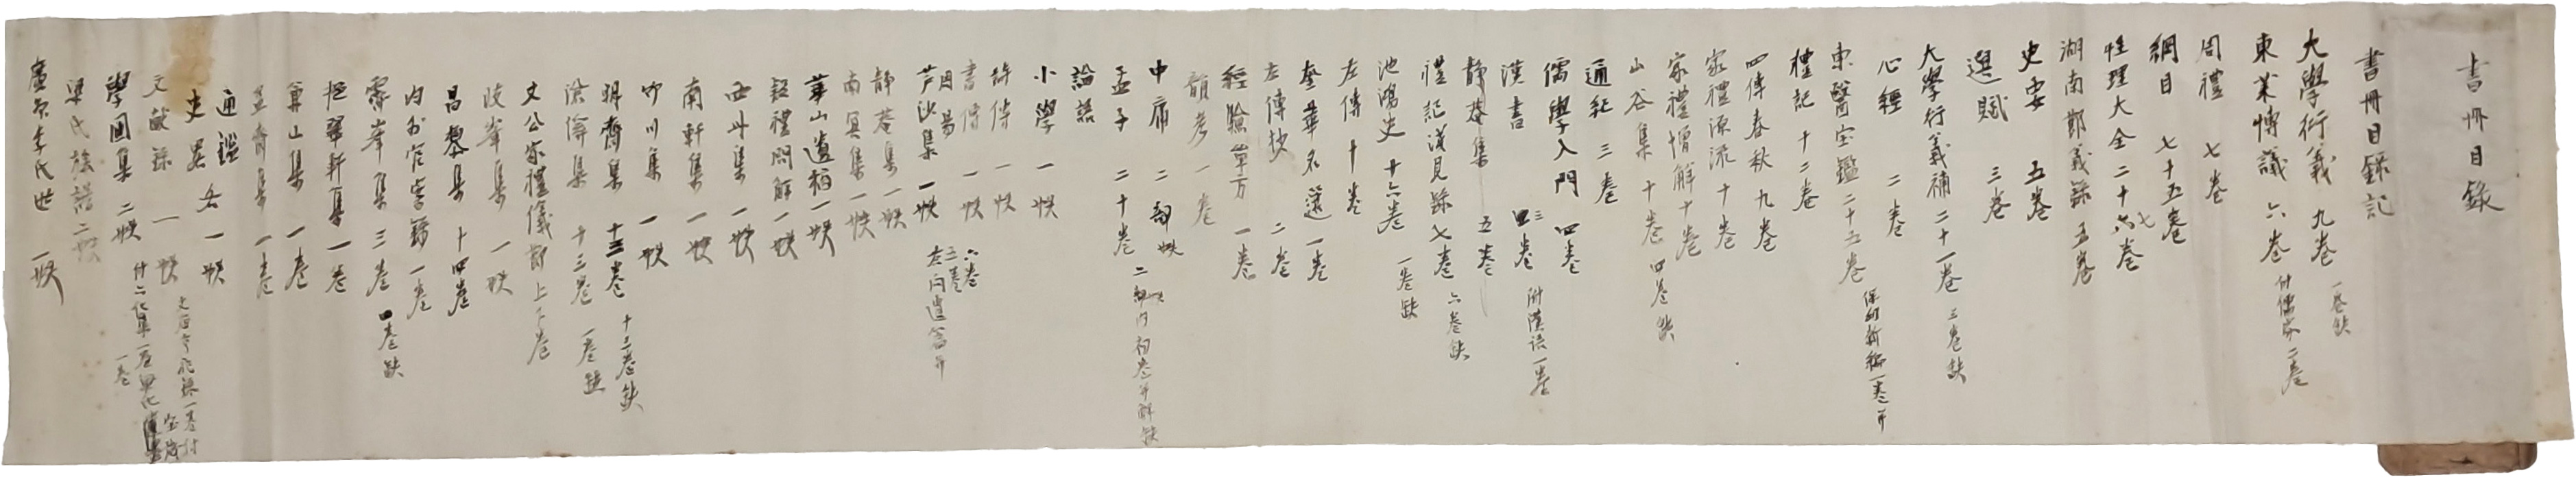 書冊目錄
書冊目錄記
大學衍義 九卷 一卷缺
東萊博議 六卷 付儒家二卷
周禮 七卷
綱目 七十五卷
性理大全 二十六卷 七
湖南鄭義錄 五卷
史要 五卷
選賦 三卷
大學衍義補 二十一卷 三卷缺
心經 二卷
東醫宝鑑 二十五卷 保幼新編一卷并
禮記 十二卷
四傳春秋 九卷
家禮源流 十卷
家禮增解 十卷
山谷集 十卷 四卷缺
通紀 三卷
儒學入門 四卷
漢書 三卷 附漢語一卷
靜菴集 五卷
禮記淺見錄 七卷 六卷缺
池鴻史 十六卷 一卷缺
左傳 十卷
左傳抄 二卷
經驗單方 一卷
韻考 一卷
中庸 二
孟子 二十卷
論語
小學 一帙
詩傳 一帙
書傳 一帙
周易
芦沙集 一帙
靜菴集 一帙
南冥集 一帙
華山遺稿 一帙
疑禮問解 一帙
西斗集 一帙
南軒集 一帙
竹川集 一帙
明齋集 十三卷 十三卷缺
滄 集 十三卷 一卷
文公家禮儀節 上下卷
峻峯集 一帙
昌黎集 十四卷
內外官案錄 一卷
霽峯集 三卷 四卷缺
拒翠軒集 一卷
集 一卷
齋集 一卷
通鑑
史畧 一帙
文獻錄 一帙
學圃集 二帙
梁氏族譜 二帙
廣原李氏世 一帙